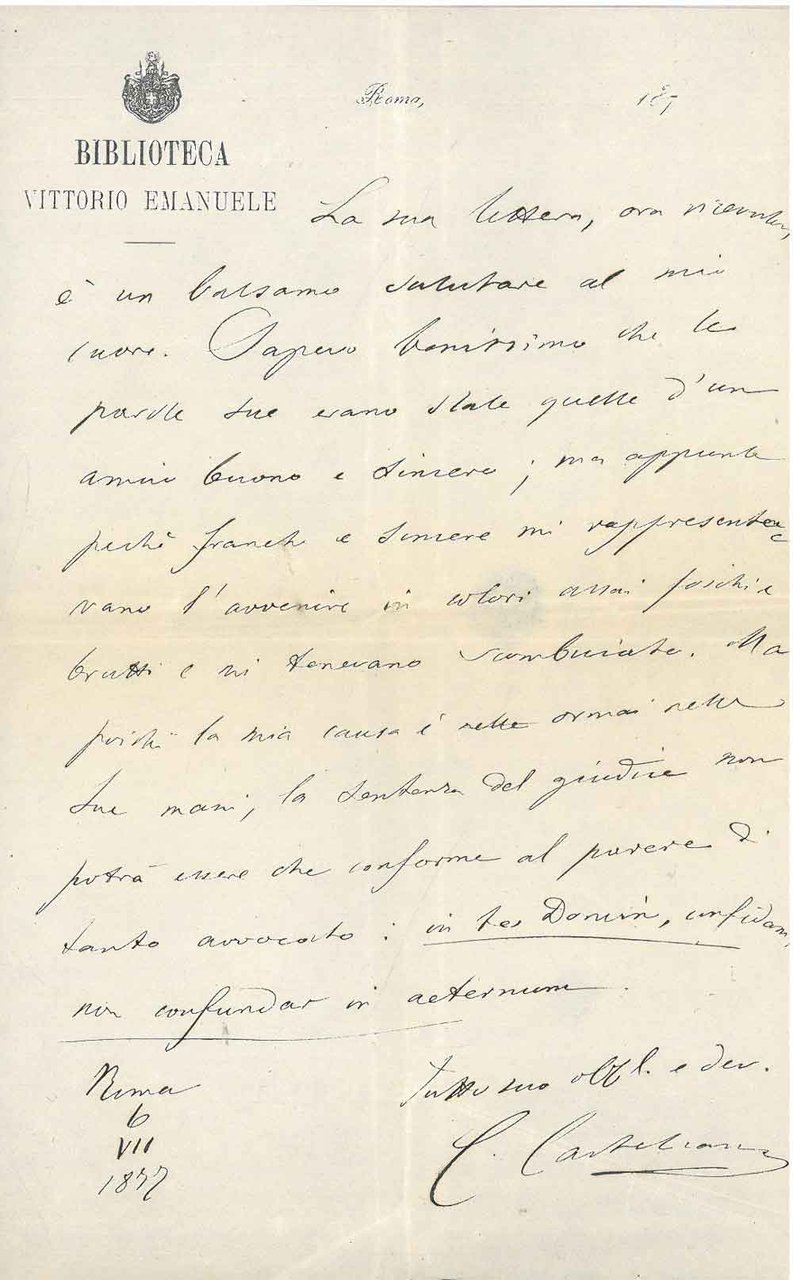 BIBLIOTECA
VITTORIO EMANUELE
Roma, 187
La sua lettera, ora ricevuta,
è un balsamo salutare al mio
cuore. Sapevo benissimo che le
parole sue erano state quelle d'un
amico buono e sincero; ma appunto
perchè franche e sincere mi rappresenta
vano l'avvenire in colori assai foschi e
brutti e mi tenevano scombuiato. Ma
poichè la mia causa è nelle ormai nelle
Sue mani, la sentenza del giudice non
potrà essere che conforme al parere di
tanto avvocato: in te, Domin, confidam,
non confundar in aeternum.
Tutto suo obbl. e dev.
C. Castellani
Roma
6
VII
1877